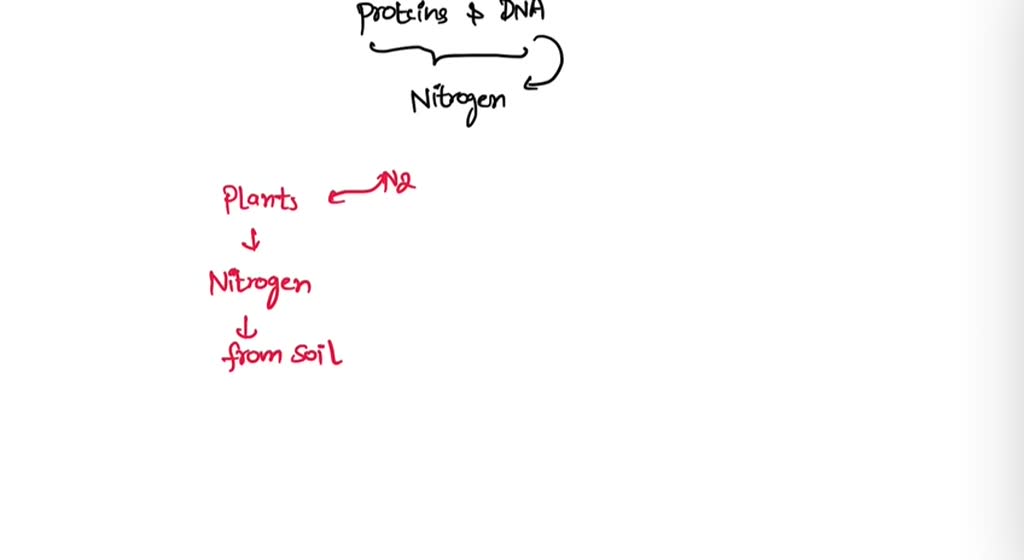 Proteins & DNA
Nitrogen
Plants N2
Nitrogen
from soil